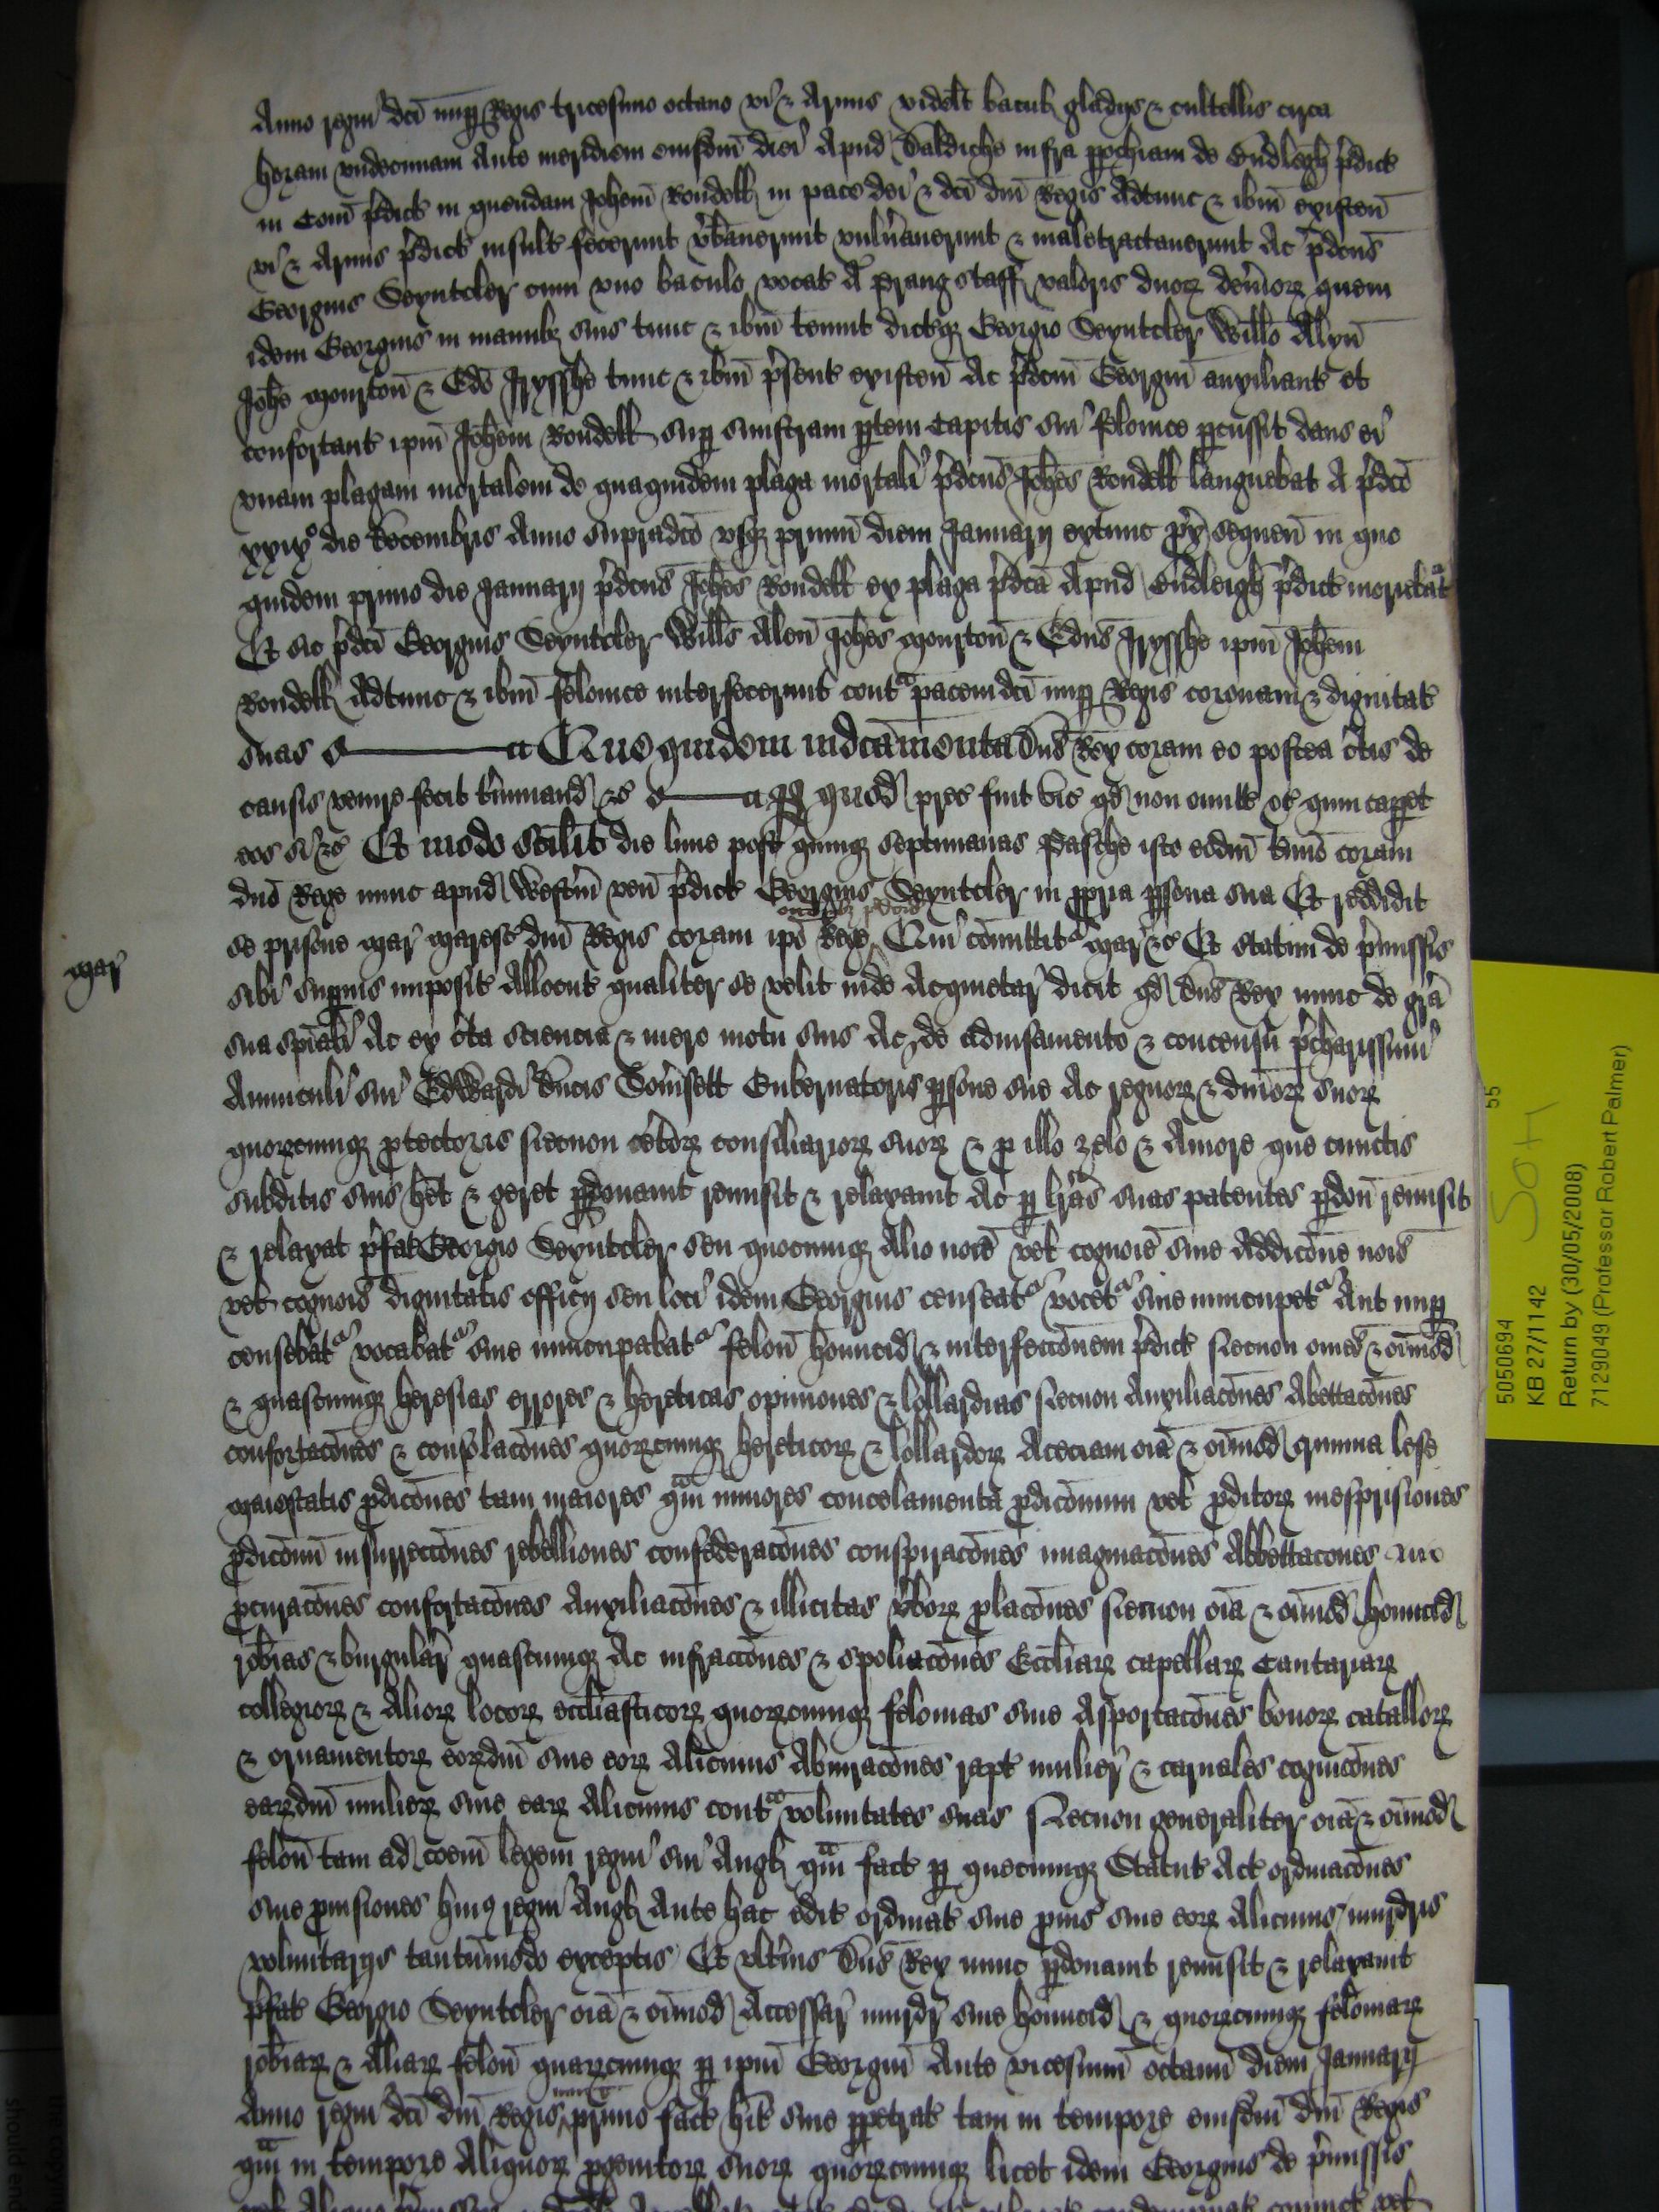 Anno regni dci nup Regis tricesimo octavo vi & Armis videlt bacul gladijs & cultellis circa
horam undecimam Ante meridiem eiusdm diei Apud Saldiche infra pochiam de Budlegh pdict
in Com pdict in quendam Johem Rondell in pace dei & dci dni Regis Adtunc & ibm existen
vi & Armis pdict insult fecerunt vbaverunt vulnaverunt & maletractaverunt Ac pdcus
Georgius Seyntcler cum uno baculo vocat A prang staff valoris duor denior quem
idem Georgius in manub suis tunc & ibm tenuit dictoq Georgio Seyntcler Willo Alyn
Johe Mourton & Edo Jrysshe tunc & ibm psent existen Ac pdcm Georgiu auxiliant et
confortant ipm Johem Rondell sup sinistram ptem Capitis sui felonice pcussit dans ei
unam plagam mortalem de quaquidem plaga mortali pdcus Johes Rondell languebat A pdco
xxix° die Decembris Anno supradco usq primu diem Januarij extunc px sequen in quo
quidem primo die Januarij pdcus Johes Rondell ex plaga pdca Apud Budleigh pdict moriebat
Et sic pdci Georgius Seyntcler Wills Alen Johes Mourton & Edus Jrysshe ipm Johem
Rondell Adtunc & ibm felonice interfecerunt contra pacem dci nup Regis coronam & dignitat
suas &c Que quidem indcamenta dns Rex coram eo postea ctis de
causis venire fecit tminand &c P quod pcept fuit vic qd non omitt &c quin capet
eos si &c Et modo scilt die lune post quinq septimanas Pasche isto eodm tmio coram
dno Rege nunc apud Westm ven pdict Georgius Seyntcler in ppria psona sua Et reddidit
se prisone Mar Maresc dni Regis coram ipo Rege Qui comittit Mar &c Et statim de pmissis
Mar
sibi supius imposit Allocut qualiter se velit inde Acquietar dicit qd dns Rex nunc de gra
sua spiali Ac ex cta sciencia & mero motu suis Ac de advisamento & concensu pcharissimi
Avunculi sui Edwardi Ducis Somsett Gubernatoris psone sue Ac regnor & dnior suor
quorcumq ptectoris Necnon cetor consiliarior suor & p illo zelo & Amore que cunctis
subditis suis het & geret pdonavit remisit & relaxavit Ac p lras suas patentes pdon remisit
& relaxat pfat Georgio Seyntcler seu quocumq Alio noie vel cognoie sive Addicone nois
vel cognois dignitatis officij seu loci idem Georgius censeat vocet sive nuncupet Aut nup
censebat vocabat sive nuncupabat felon homicid & interfecconem pdict Necnon omes & oimod
& quascumq heresias errores & hereticas opiniones & lollardias Necnon Auxiliacones Abettacones
confortacones & consplacones quorcumq hereticor & lollardor Aceciam oia & oimod crimina lese
maiestatis pdicones tam maiores qam minores concelamenta pdiconum vel pditor mesprisiones
pdiconu insurrecciones rebelliones confederacones conspiracones imaginacones Abbettacones
pcuracones confortacones Auxiliacones & illicitas vbor placones Necnon oia & oimod homicid
robias & burgular quascumq Ac infraccones & spoliacones Eccliar capellar Cantariar
collegior & Alior locor eccliasticor quorcumq felonias sive Asportacones bonor catallor
& ornamentor eordm sive eor Alicuius Abiuracones rapt mulier & carnales cognicones
eardm mulier sive ear Alicuius contra voluntates suas Necnon generaliter oia & oimod
felon tam ad coem legem regni sui Angl qam fact p quecumq Statut Act ordinacones
sive pvisiones huiq regni Angl Ante hac edit ordinat sive pvis sive eor Alicuius murdris
voluntarijs tantumodo exceptis Et ultius Dns Rex nunc pdonavit remisit & relaxavit
pfat Georgio Seyntcler oia & oimod Accessar murdr sive homicid & quorcumq feloniar
robiar & Aliar felon quarcumq p ipm Georgiu Ante vicesimu octavu diem Januarij
Anno regni dci dni Regis nunc primo fact hit sive ppetrat tam in tempore eiusdm dni Regis
qam in tempore Aliquor pgenitor suor quorcumq licet idem Georgius de pmissis
5050694 55
KB 27/1142 SOH
Return by (30/05/2008)
71129049 (Professor Robert Palmer)